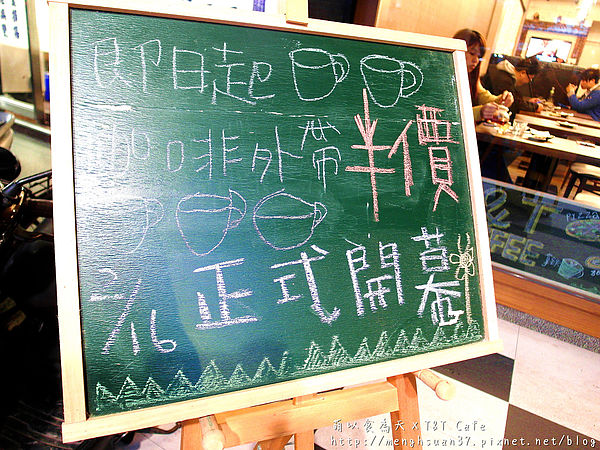 即日起
咖啡外帶半價
2/16 正式開幕
PIZZA
COFFEE
萌以食為天 X T&T Cafe
http://menghsuan37.pixnet.net/blog